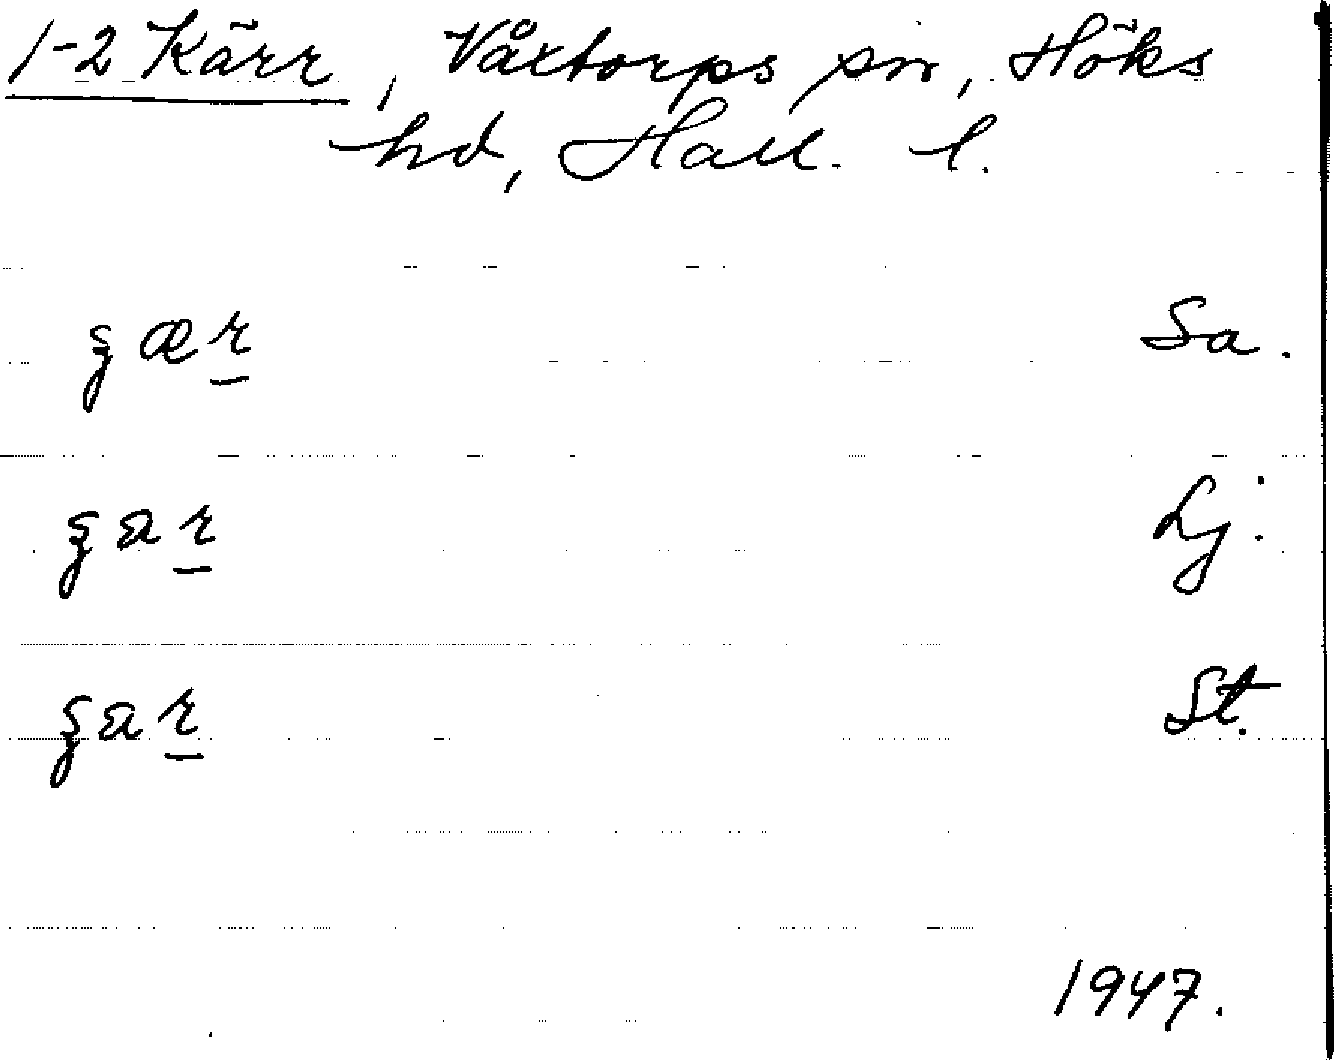 1-2 Kärr, Våxtorps sn, Höks
hd, Hall. l.
ʒær Sa.
ʒar Lj.
ʒar St.
1947.